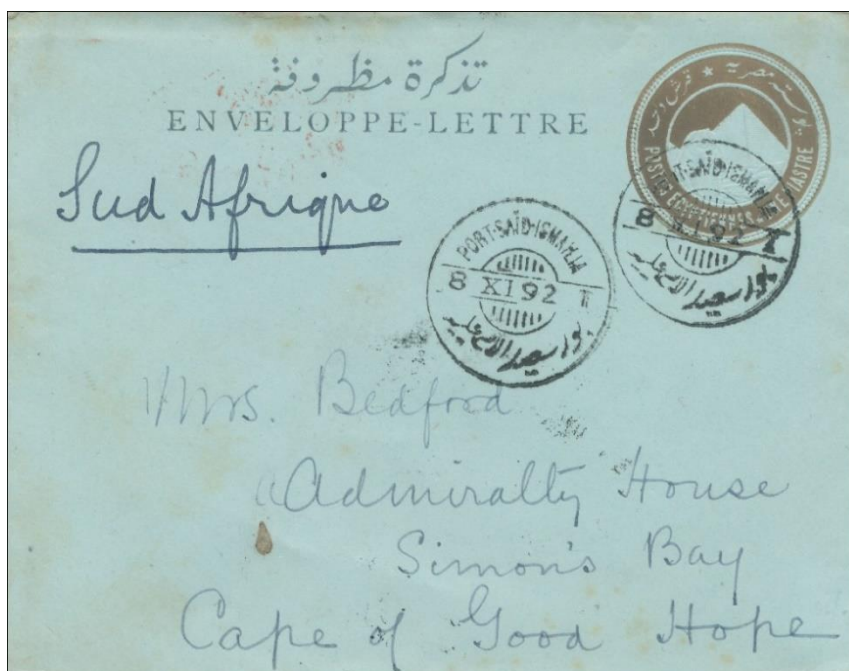 تذكرة مظروفة
ENVELOPPE-LETTRE
بوستة مصرية ★ قرش واحد
POSTES EGYPTIENNES UNE PIASTRE
Sud Afrique
PORT-SAÏD-ISMAILIA
8 XI 92 T
بور سعيد الاسماعيلية
PORT-SAÏD-ISMAILIA
8 XI 92 T
بور سعيد الاسماعيلية
Mrs. Bedford
Admiralty House
Simon's Bay
Cape of Good Hope